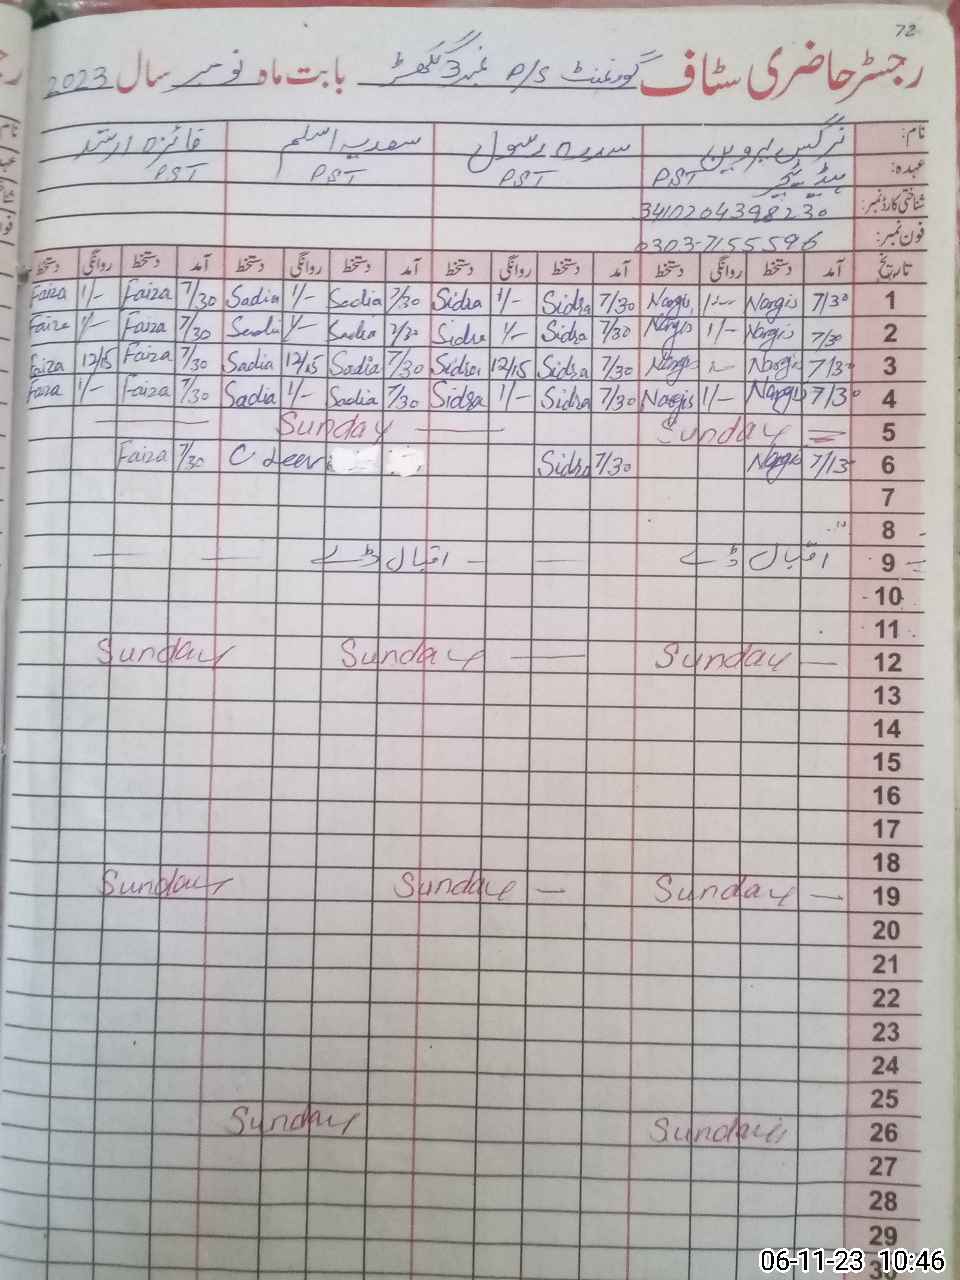 72
رجسٹر حاضری سٹاف گورنمنٹ P/S نمبر 3 گکھڑ بابت ماہ نومبر سال 2023
نام: نرگس پروین سدرہ رسول سعدیہ اسلم فائزہ ارشد
عہدہ: ہیڈ ٹیچر PST PST PST PST
شناختی کارڈ نمبر: 3410204398230
فون نمبر: 0303-7155596
تاریخ آمد دستخط روانگی دستخط آمد دستخط روانگی دستخط آمد دستخط روانگی دستخط آمد دستخط روانگی دستخط
Faiza 1/- Faiza 7/30 Sadia 1/- Sadia 7/30 Sidra 1/- Sidra 7/30 Nargis 1/- Nargis 7/30 1
Faiza 1/- Faiza 7/30 Sadia 1/- Sadia 7/30 Sidra 1/- Sidra 7/30 Nargis 1/- Nargis 7/30 2
Faiza 12/15 Faiza 7/30 Sadia 12/15 Sadia 7/30 Sidra 12/15 Sidra 7/30 Nargis Nargis 7/30 3
Faiza 1/- Faiza 7/30 Sadia 1/- Sadia 7/30 Sidra 1/- Sidra 7/30 Nargis 1/- Nargis 7/30 4
Sunday Sunday 5
Faiza 7/30 C Leev Sidra 7/30 Nargis 7/13 6
7
8
9 اقبال ڈے اقبال ڈے
10
11
Sunday Sunday Sunday 12
13
14
15
16
17
18
Sunday Sunday Sunday 19
20
21
22
23
24
25
Sunday Sunday 26
27
28
29
30
06-11-23 10:46